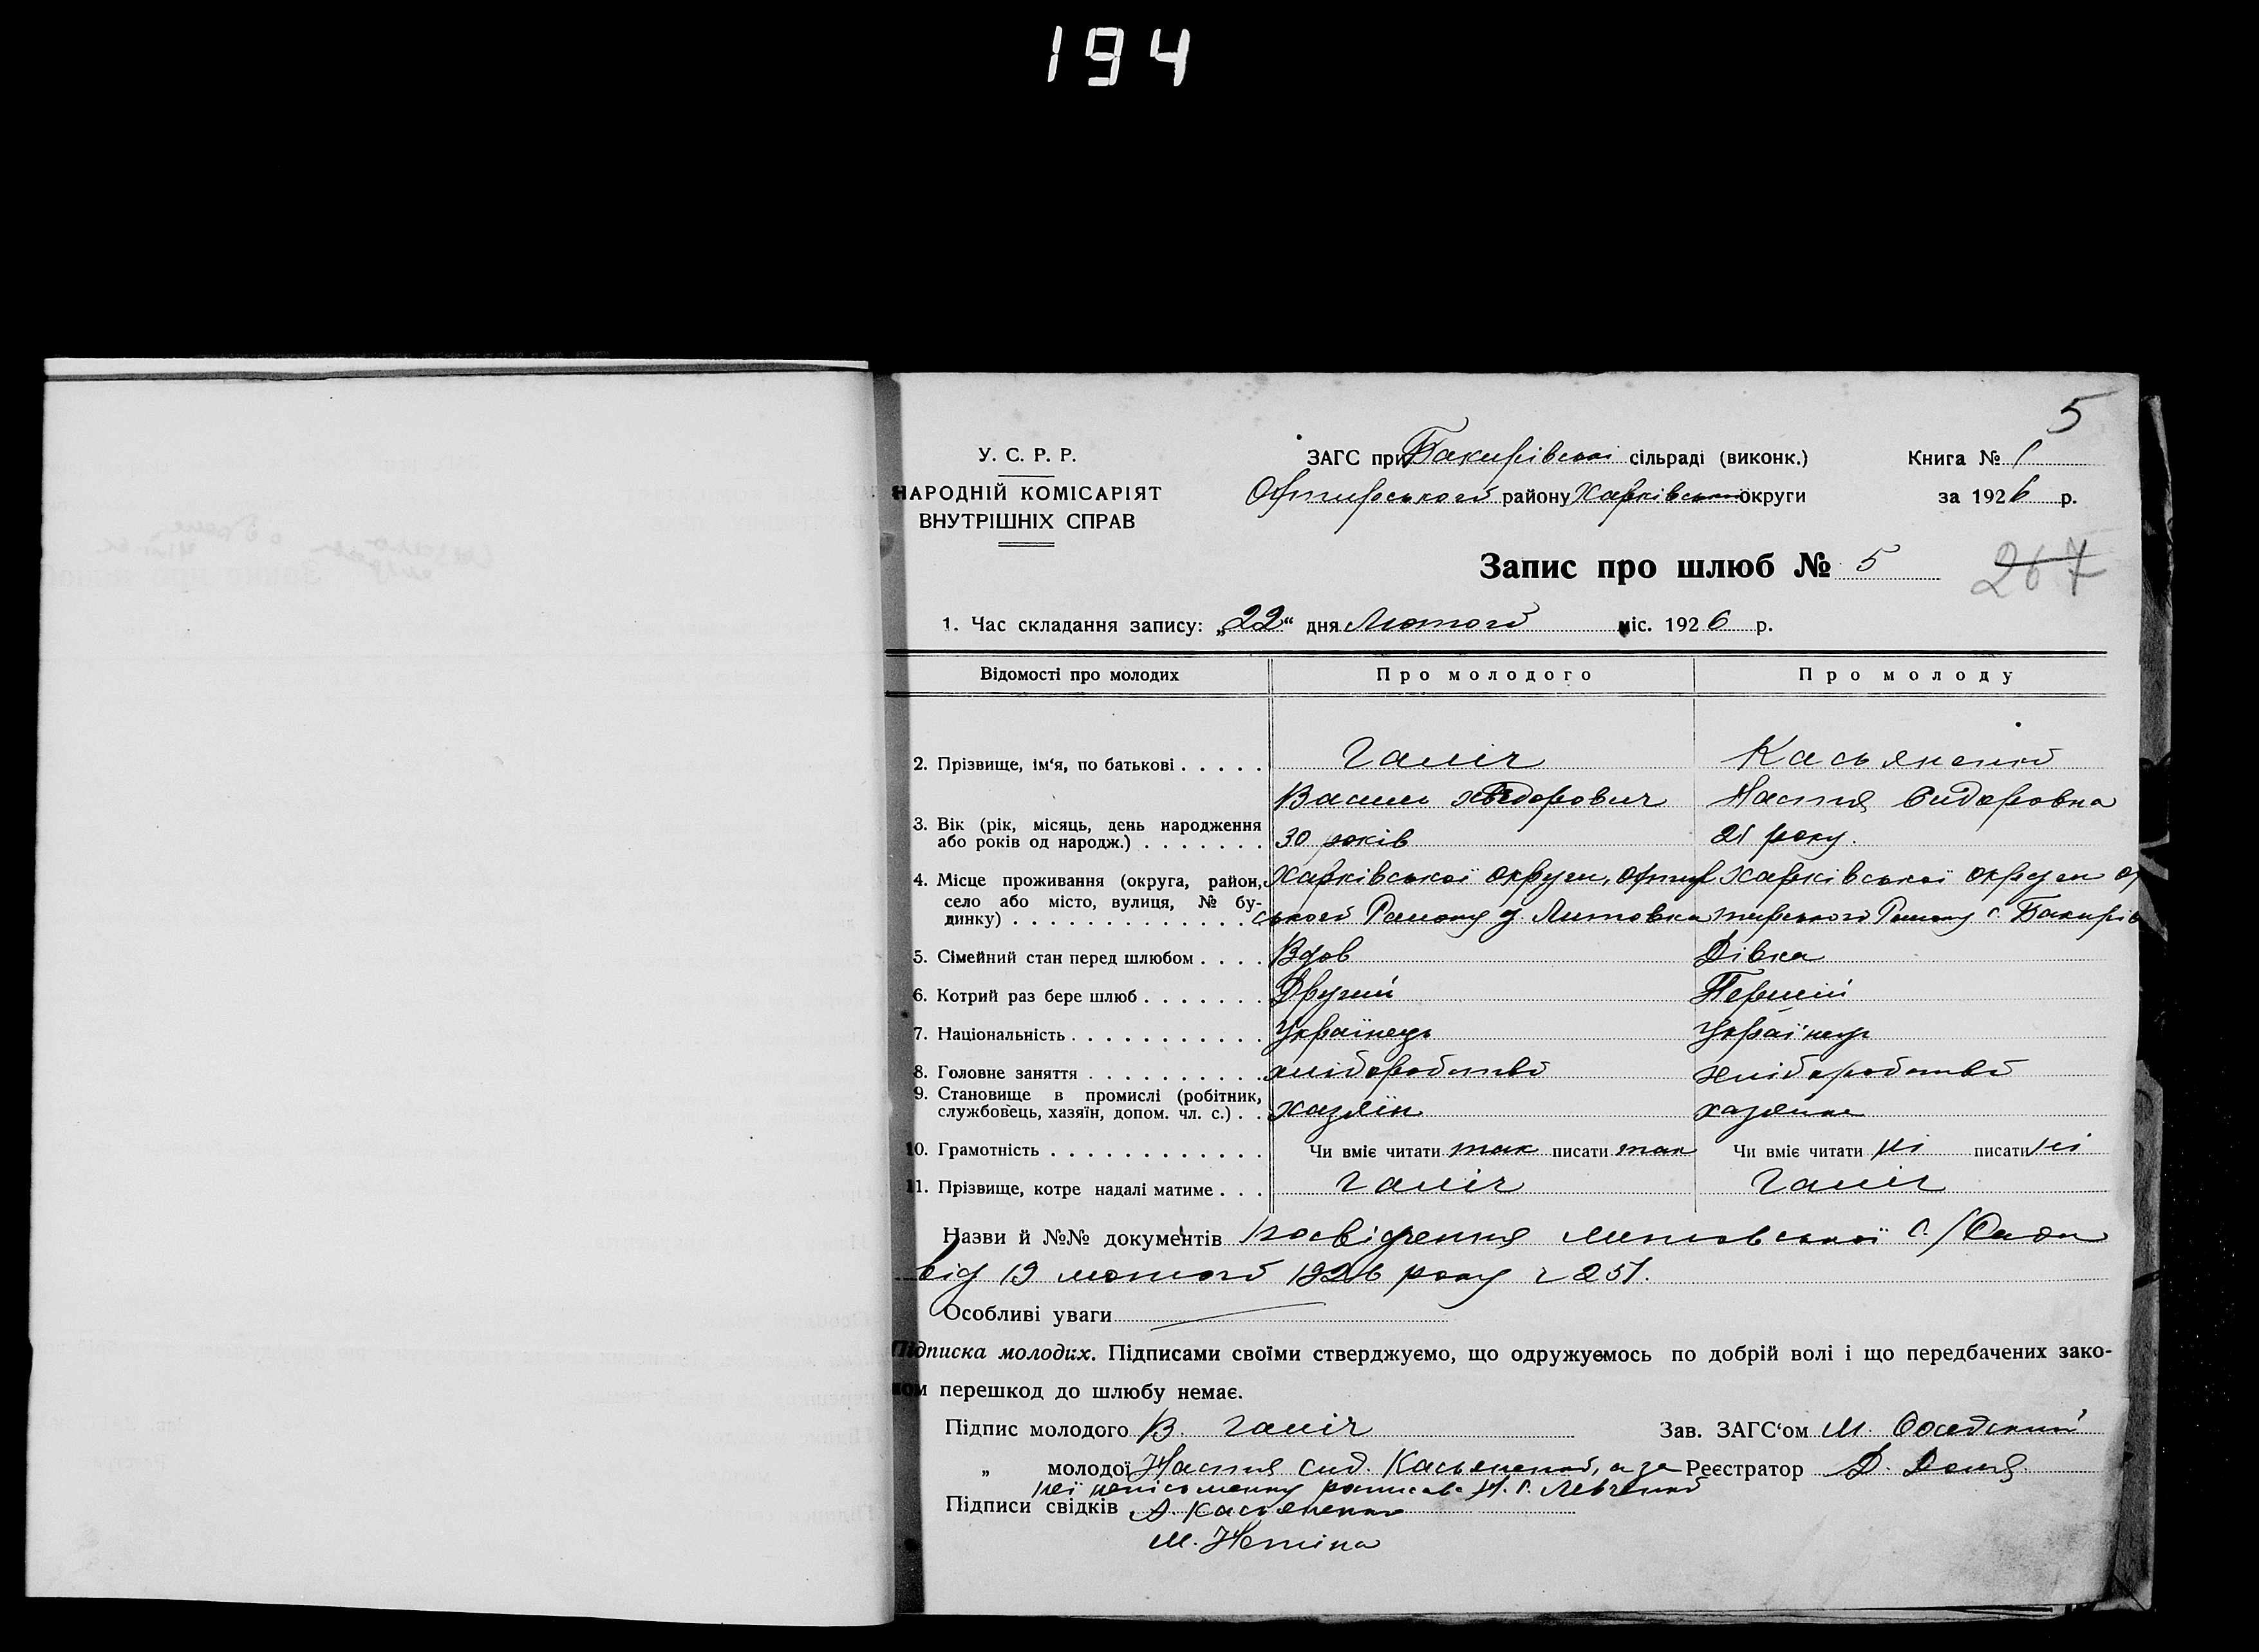 194
5
У. С. Р. Р.
НАРОДНІЙ КОМІСАРІЯТ
ВНУТРІШНІХ СПРАВ
ЗАГС при Бакирівській сільраді (виконк.)
Книга № 1
Охтирського району Харківської округи
за 1926 р.
Запис про шлюб № 5
267
1. Час складання запису: „22“ дня Лютого міс. 1926 р.
Відомості про молодих Про молодого Про молоду
2. Прізвище, ім'я, по батькові . . . . . Галіч Касьяненко
Василь Хведорович Настя Сидоровна
3. Вік (рік, місяць, день народження
або років од народж.) . . . . . . . 30 років 21 року.
4. Місце проживання (округа, район, Харківської округи, Охтир Харківської округи Ох
село або місто, вулиця, № бу-
динку) . . . . . . . . . . . . . ського Району д Литовка тирського Району с. Бакирів
5. Сімейний стан перед шлюбом . . . . Вдов Дівка
6. Котрий раз бере шлюб . . . . . . . Другий Перший
7. Національність . . . . . . . . . . . Українець Українець
8. Головне заняття . . . . . . . . . . хліборобство хліборобство
9. Становище в промислі (робітник,
службовець, хазяїн, допом. чл. с.) . . хазяїн хазяйка
10. Грамотність . . . . . . . . . . . . Чи вміє читати так писати так Чи вміє читати ні писати ні
11. Прізвище, котре надалі матиме . . . Галіч Галіч
Назви й №№ документів посвідчення Литовської С./Ради
від 19 лютого 1926 року ч 251.
Особливі уваги
Підписка молодих. Підписами своїми стверджуємо, що одружуємось по добрій волі і що передбачених зако-
ном перешкод до шлюбу немає.
Підпис молодого В. Галіч Зав. ЗАГС'ом М.
„ молодої Настя Сид. Касьяненко, а за Реєстратор Д.
неї неписьменну росписавс Н. Г. Левченко
Підписи свідків А. Касьяненко
М.